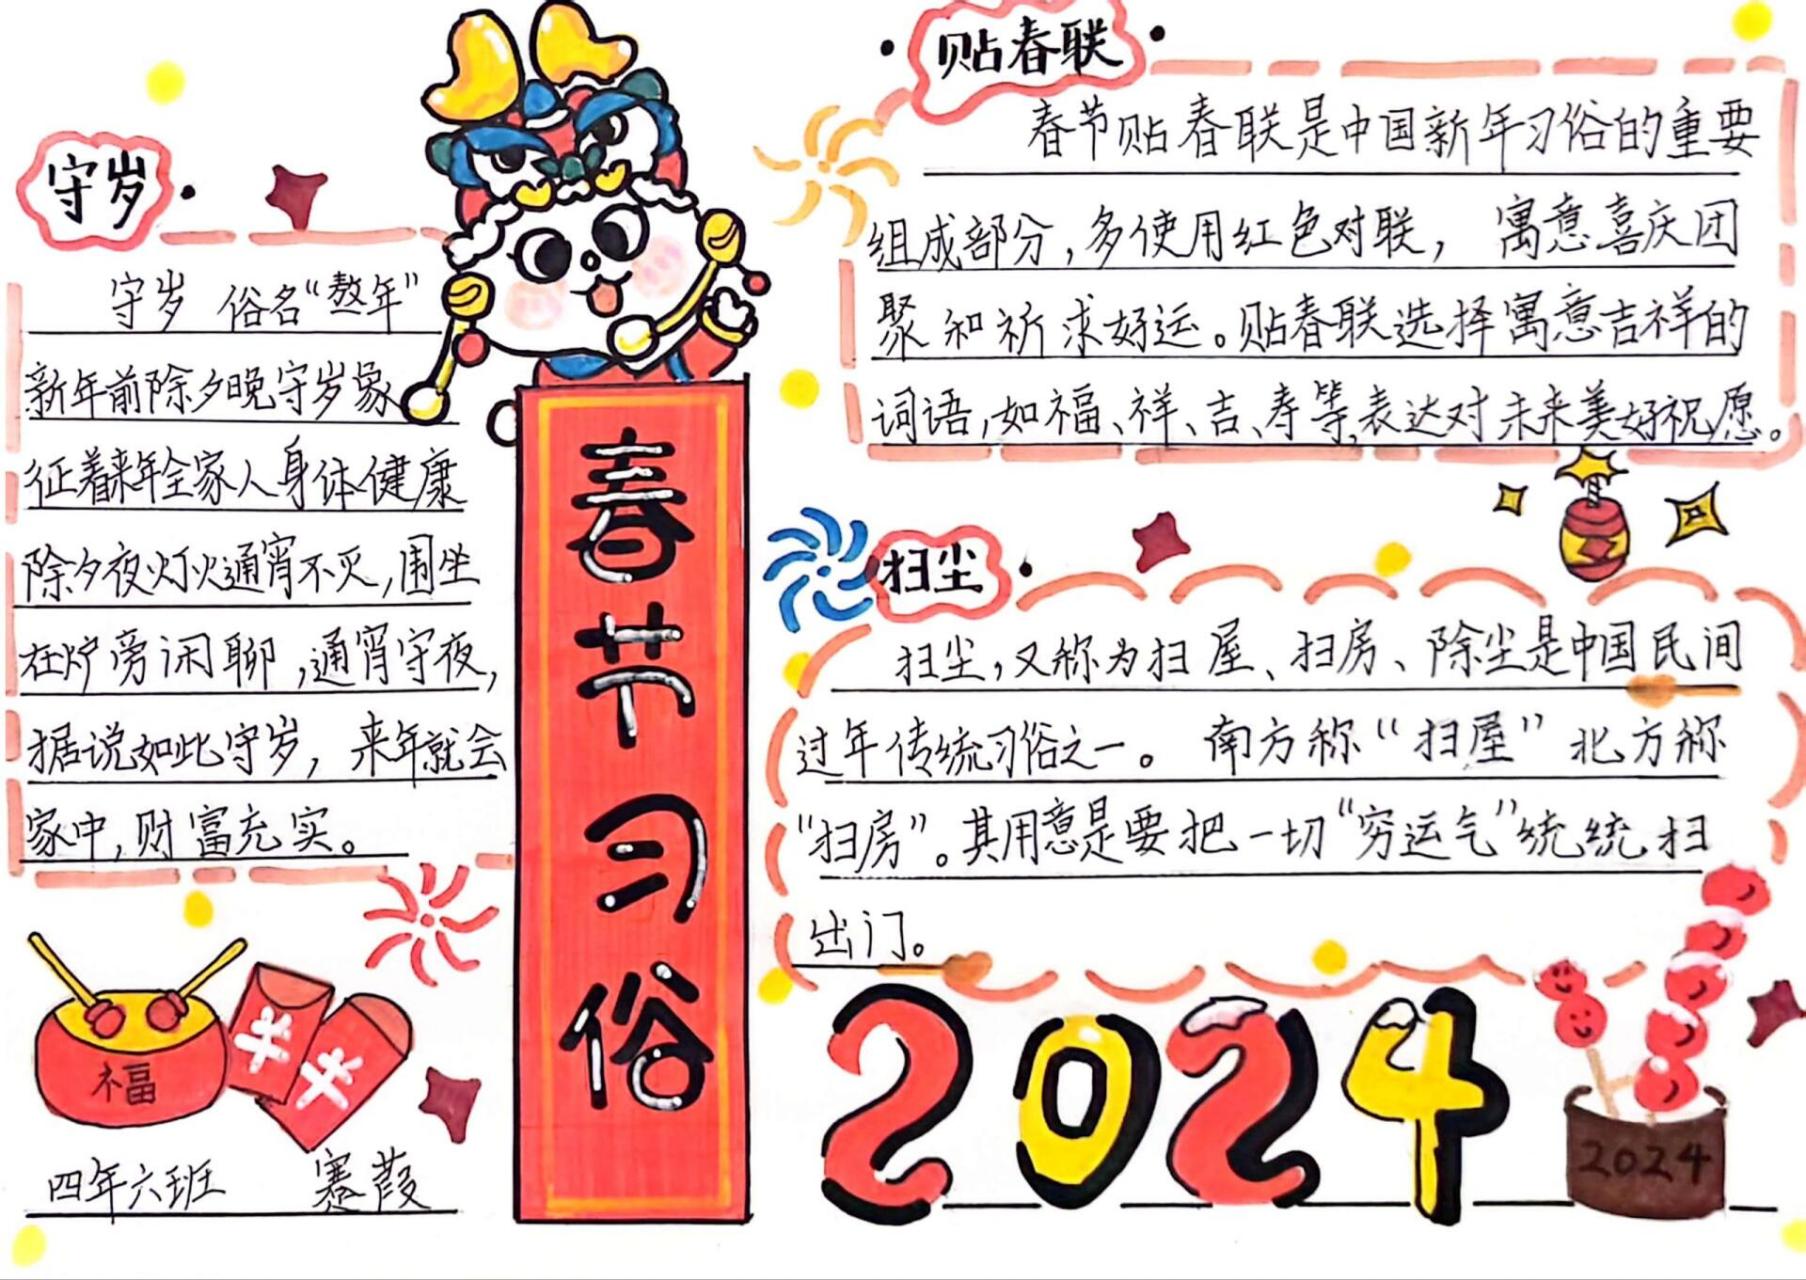 守岁
守岁 俗名“熬年”
新年前除夕晚守岁象
征着来年全家人身体健康
除夕夜灯火通宵不灭,围坐
在炉旁闲聊,通宵守夜,
据说如此守岁,来年就会
家中,财富充实。
福
四年六班 寒葭
春节习俗
贴春联
春节贴春联是中国新年习俗的重要
组成部分,多使用红色对联,寓意喜庆团
聚和祈求好运。贴春联选择寓意吉祥的
词语,如福、祥、吉、寿等,表达对未来美好祝愿。
扫尘
扫尘,又称为扫屋、扫房、除尘是中国民间
过年传统习俗之一。南方称“扫屋”北方称
“扫房”。其用意是要把一切“穷运气”统统扫
出门。
2024
2024